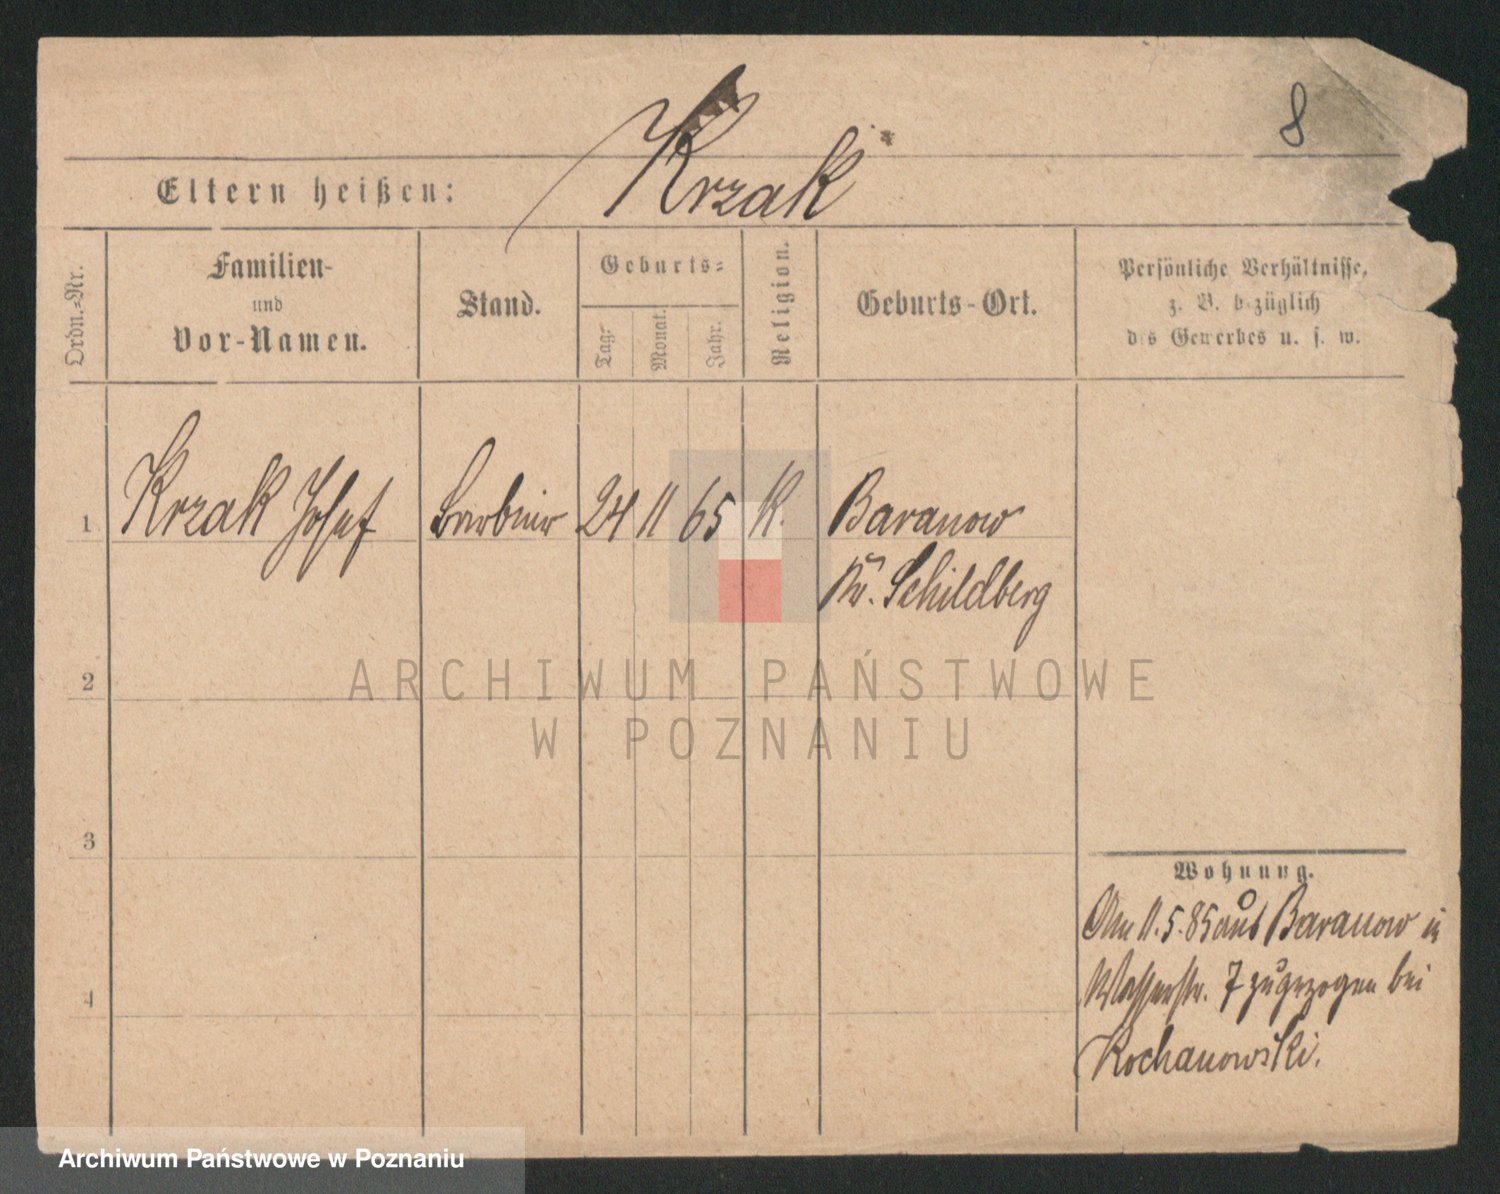 8
Krzak
Eltern heißen:
Ordn.-Nr.
Familien-
und
Vor-Namen.
Stand.
Geburts-
Tag-
Monat.
Jahr.
Religion.
Geburts-Ort.
Persönliche Verhältnisse,
z. B. bezüglich
des Gewerbes u. s. w.
1 Krzak Josef Barbier 24 11 65 K. Baranow
Kr. Schildberg
2
3
4
Wohnung.
Am 11.5.85 aus Baranow in
Wasserstr. 7 zugezogen bei
Kochanowski.
ARCHIWUM PAŃSTWOWE
W POZNANIU
Archiwum Państwowe w Poznaniu